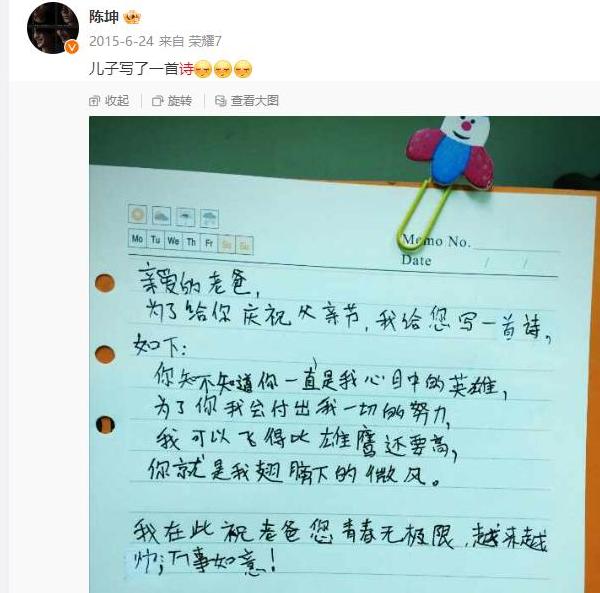 陈坤
2015-6-24 来自 荣耀7
儿子写了一首诗
收起 旋转 查看大图
Memo No.
Mo Tu We Th Fr Sa Su
Date / /
亲爱的老爸,
为了给你庆祝父亲节,我给您写一首诗,
如下:
你知不知道你一直是我心目中的英雄,
为了你我会付出我一切的努力,
我可以飞得比雄鹰还要高,
你就是我翅膀下的微风。
我在此祝老爸您青春无极限,越来越
帅;万事如意!